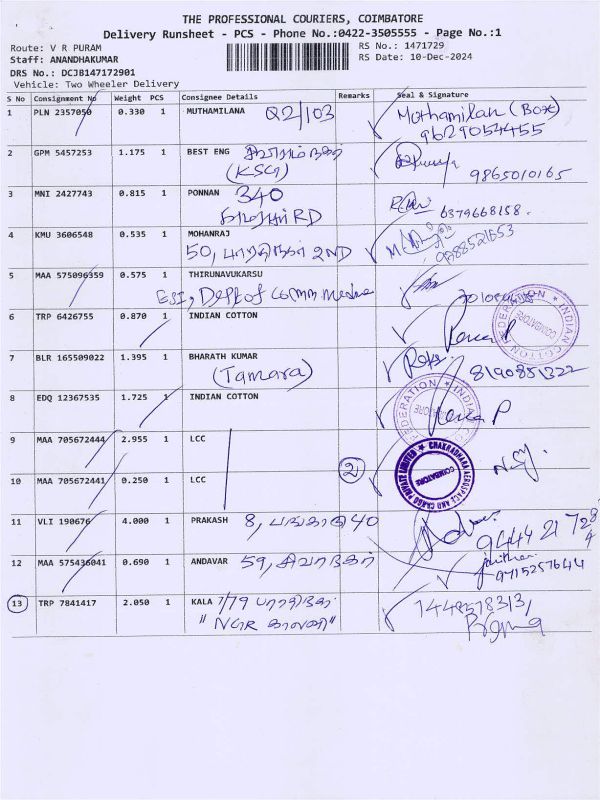 THE PROFESSIONAL COURIERS, COIMBATORE
Delivery Runsheet - PCS - Phone No.:0422-3505555 - Page No.:1
Route: V R PURAM
RS No.: 1471729
Staff: ANANDHAKUMAR
RS Date: 10-Dec-2024
DRS No.: DCJB147172901
Vehicle: Two Wheeler Delivery
S No Consignment No Weight PCS Consignee Details Remarks Seal & Signature
1 PLN 2357050 0.330 1 MUTHAMILANA Q2/103 Muthamilan (Box)
9629054455
2 GPM 5457253 1.175 1 BEST ENG
(KSG) 9865010165
3 MNI 2427743 0.815 1 PONNAN 340
RD 6379668158.
4 KMU 3606548 0.535 1 MOHANRAJ
50, பாரதிநகர் 2ND
5 MAA 575096359 0.575 1 THIRUNAVUKARSU
ESI, Dept of comm medicine
6 TRP 6426755 0.870 1 INDIAN COTTON
INDIAN COTTON FEDERATION COIMBATORE
7 BLR 165509022 1.395 1 BHARATH KUMAR
(Tamara) 8190851322
8 EDQ 12367535 1.725 1 INDIAN COTTON
INDIAN COTTON FEDERATION COIMBATORE
9 MAA 705672444 2.955 1 LCC
CHAKRADHARA AEROSPACE AND CARGO PRIVATE LIMITED COIMBATORE
10 MAA 705672441 0.250 1 LCC 2
11 VLI 190676 4.000 1 PRAKASH 8, 40
12 MAA 575436041 0.690 1 ANDAVAR 59, சிவாநகர்
9715257644
13 TRP 7841417 2.050 1 KALA 7/79 பாரதிநகர்
"NGR